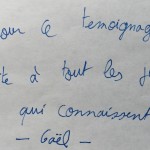 our ce temoignag
te à tout les je
qui connaissent
- Gaël -